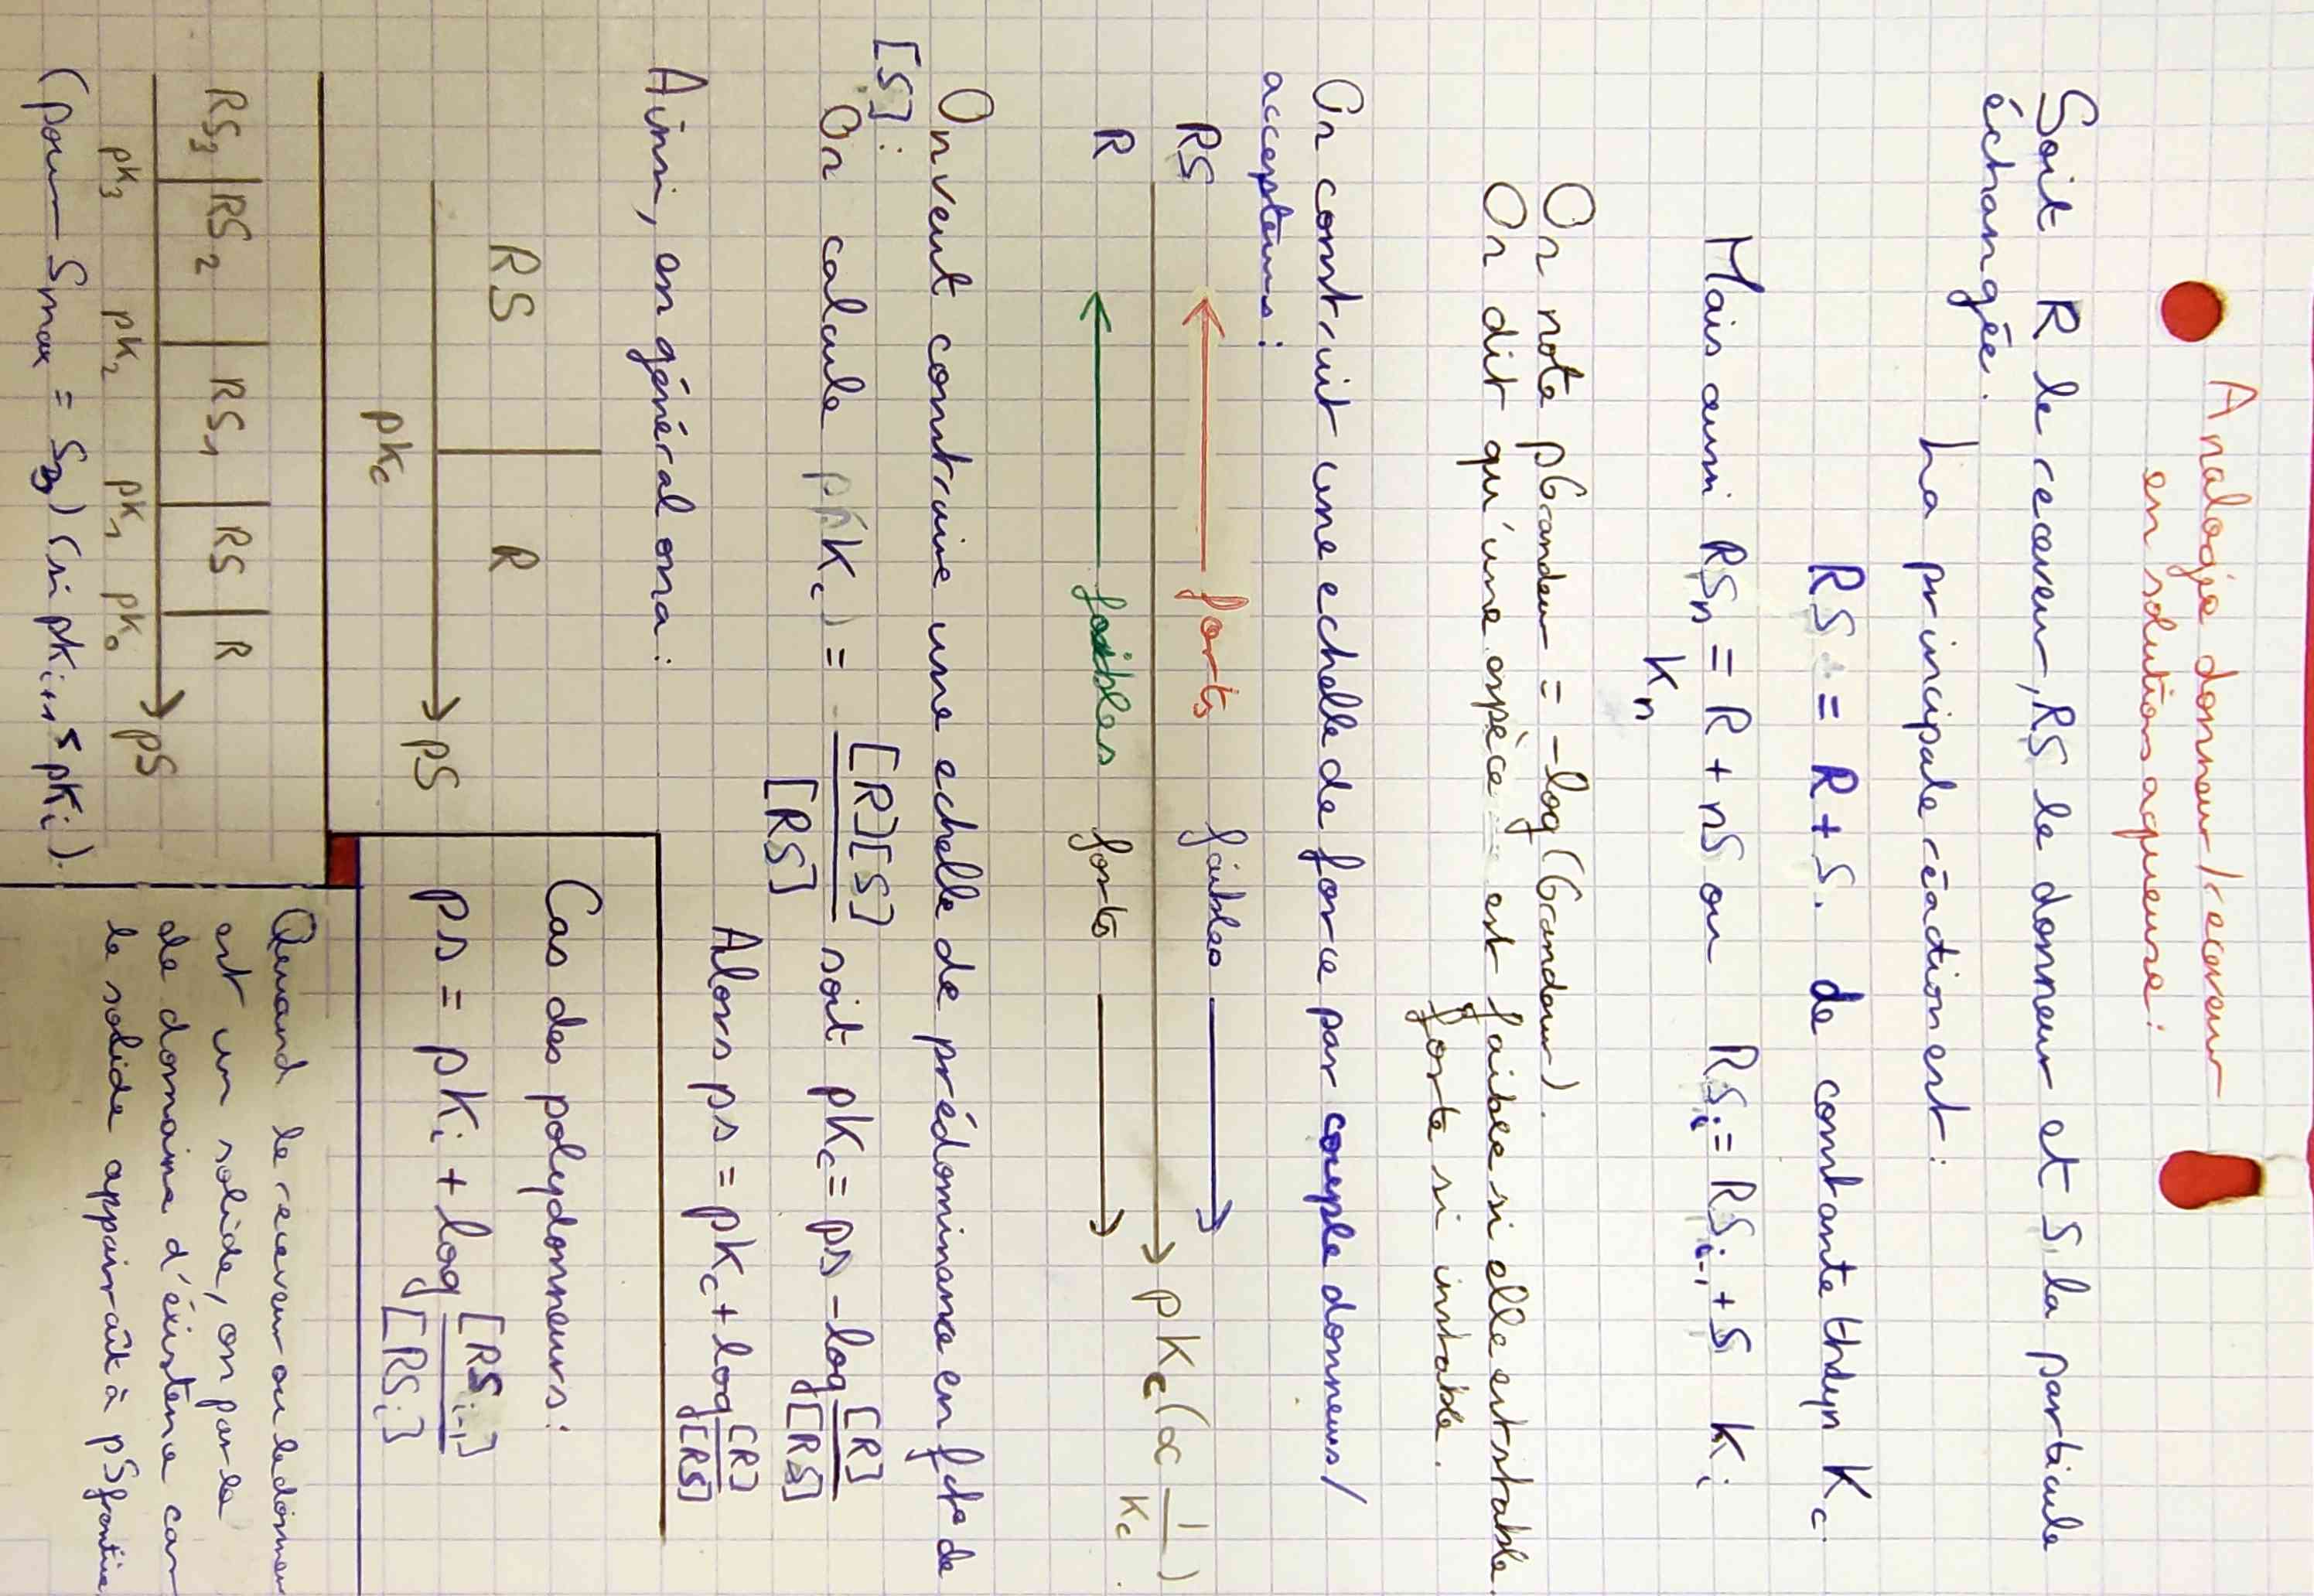 Analogie donneur/receveur
en solutions aqueuse:
Soit R le receveur, RS le donneur et S la particule
échangée.
La principale réaction est:
RS = R + S. de constante thdyn Kc.
Mais aussi RSn = R + nS ou RSi = RSi-1 + S Ki
Kn
On note pGrandeur = -log(Grandeur).
On dit qu'une espèce est faible si elle est stable.
forte si instable.
On construit une echelle de force par couple donneurs/
accepteurs:
RS forts faibles
pKc (∝ 1/Kc).
R faibles forts
On veut construire une echelle de prédominance en fcte de
[S]:
On calcule p(Kc) = [R][S]/[RS] soit pKc = ps - log [R]/[RS]
Alors ps = pKc + log [R]/[RS]
Ainsi, en général on a:
RS R
pKc pS
RS3 | RS2 | RS1 | RS | R
pK3 pK2 pK1 pK0 pS
(pour Smax = S3) (si pKi+1 ≤ pKi).
Cas des polydonneurs:
ps = pKi + log [RSi-1]/[RSi]
Quand le receveur ou le donneur
est un solide, on parle
de domaine d'éxistence car
le solide apparaît à pS frontière